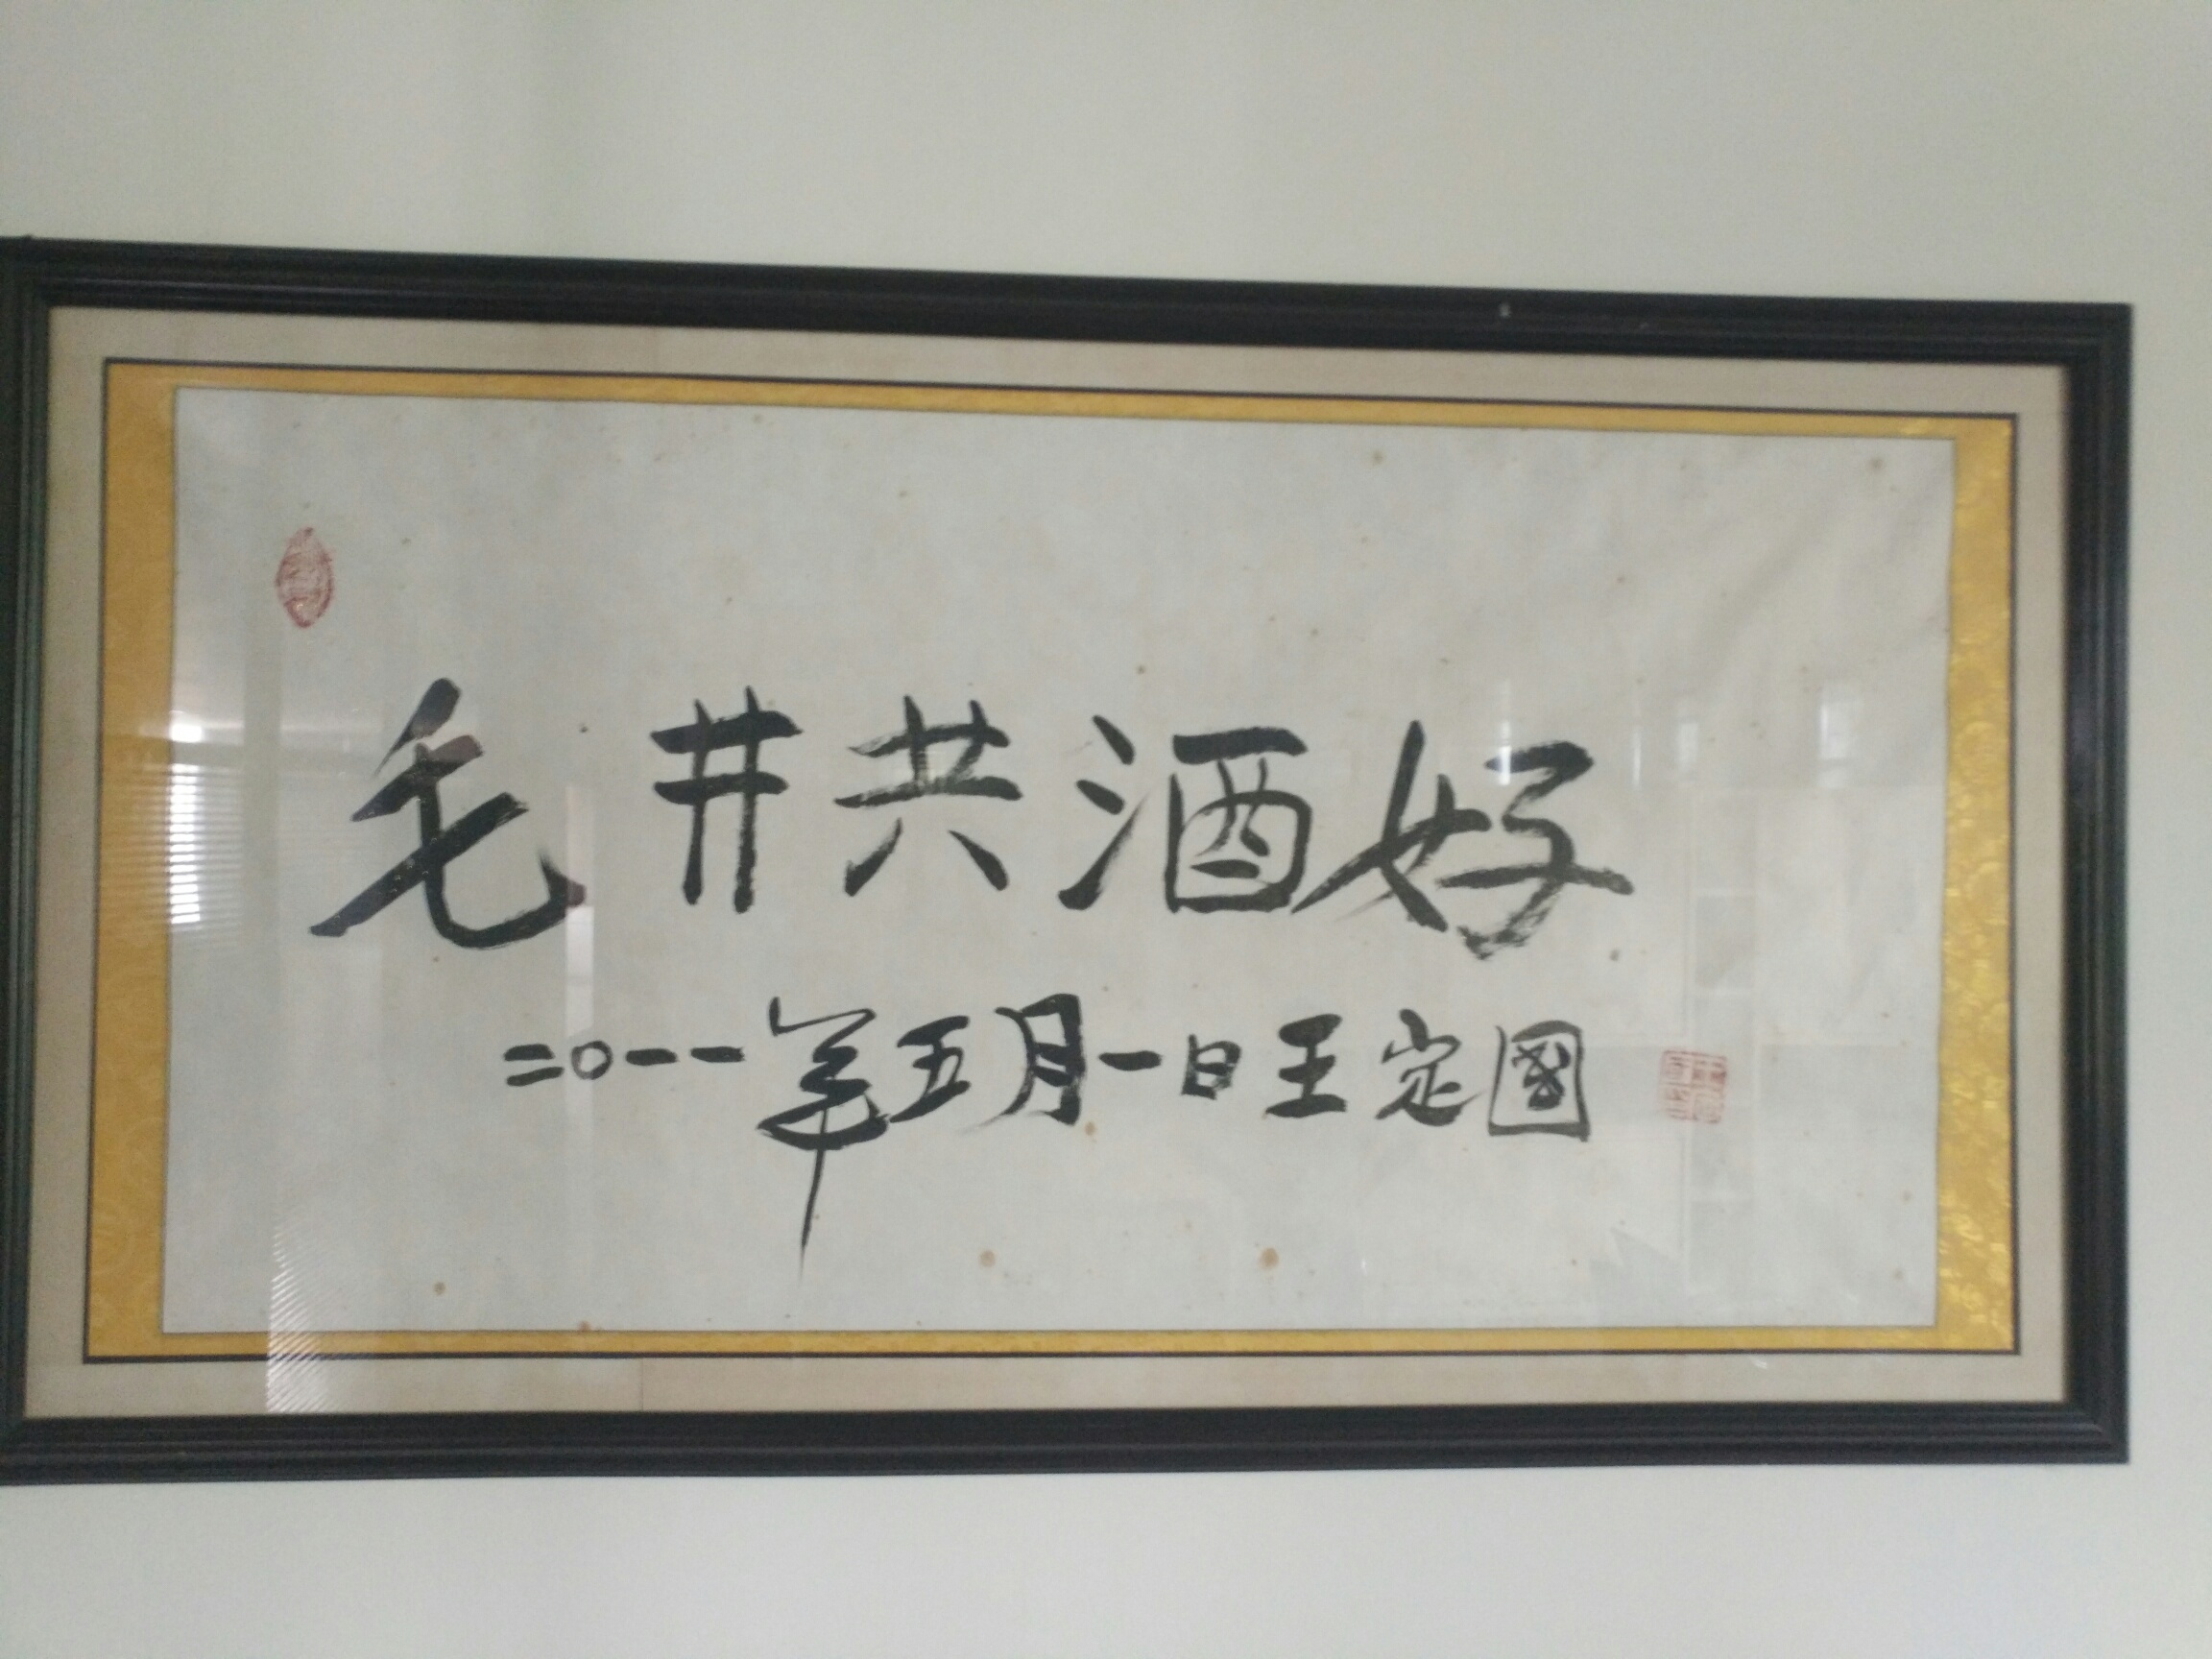 毛井共酒好
二〇一一年五月一日王定國